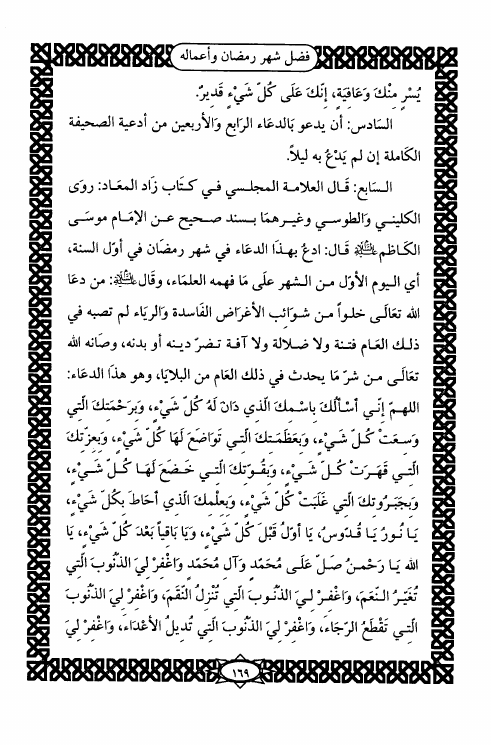 فضل شهر رمضان وأعماله
يُسْرٍ مِنْكَ وَعَافِيَةٍ، إِنَّكَ عَلَى كُلِّ شَيْءٍ قَدِيرٌ.
السادس: أن يدعو بَالدعاء الرابع وَالأربعين من أدعية الصحيفة
الكاملة إن لم يَدْعُ به ليلاً.
السابع: قَال العلامة المجلسي في كتَاب زَاد المعَاد: روَى
الكليني وَالطوسي وغيرهمَا بسند صحيح عن الإمَام موسَى
الكَاظم عليه السلام قَال: ادعُ بهذَا الدعَاء في شهر رمضَان في أوّل السنة،
أي اليوم الأوّل من الشهر علَى مَا فهمه العلمَاء، وقَال عليه السلام: من دعَا
الله تعَالَى خلواً من شوَائب الأغرَاض الفَاسدة وَالريَاء لم تصبه في
ذلك العَام فتنة ولَا ضلَالة ولَا آفة تضرّ دينه أو بدنه، وصَانه الله
تعَالَى من شرّ مَا يحدث في ذلك العَام من البلَايَا، وهو هذَا الدعَاء:
اللهمّ إنّي أسْألُكَ بِاسْمِكَ الّذي دَانَ لَهُ كُلّ شَيْءٍ، وَبِرَحْمَتِكَ الّتي
وَسِعَتْ كُلّ شَيْءٍ، وَبِعَظَمَتِكَ الّتي تَوَاضَعَ لَهَا كُلّ شَيْءٍ، وَبِعِزّتِكَ
الّتي قَهَرَتْ كُلّ شَيْءٍ، وَبِقُوّتِكَ الّتي خَضَعَ لَهَا كُلّ شَيْءٍ،
وَبِجَبَرُوتِكَ الّتي غَلَبَتْ كُلّ شَيْءٍ، وَبِعِلْمِكَ الّذي أحَاطَ بِكُلّ شَيْءٍ،
يَا نُورُ يَا قُدّوسُ، يَا أوّلَ قَبْلَ كُلّ شَيْءٍ، وَيَا بَاقِياً بَعْدَ كُلّ شَيْءٍ، يَا
الله يَا رَحْمنُ صَلّ عَلَى مُحَمّدٍ وَآلِ مُحَمّدٍ وَاغْفِرْ لِيَ الذّنُوبَ الّتي
تُغَيّرُ النّعَمَ، وَاغْفِرْ لِيَ الذّنُوبَ الّتي تُنْزِلُ النّقَمَ، وَاغْفِرْ لِيَ الذّنُوبَ
الّتي تَقْطَعُ الرّجَاءَ، وَاغْفِرْ لِيَ الذّنُوبَ الّتي تُدِيلُ الأعْدَاءَ، وَاغْفِرْ لِيَ
١٦٩